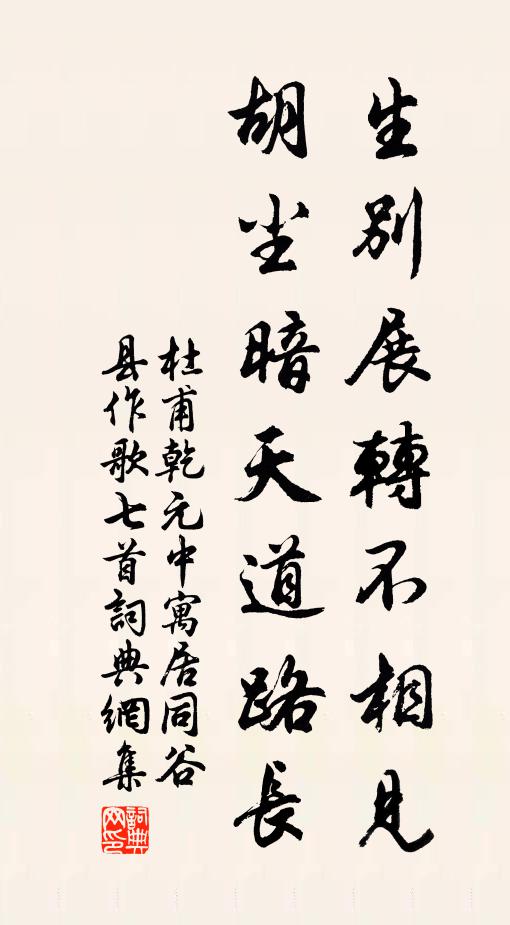 生別展轉不相見
胡尘暗天道路長
杜甫乾元中寓居同谷
县作歌七首詞典網集
詞典
网印